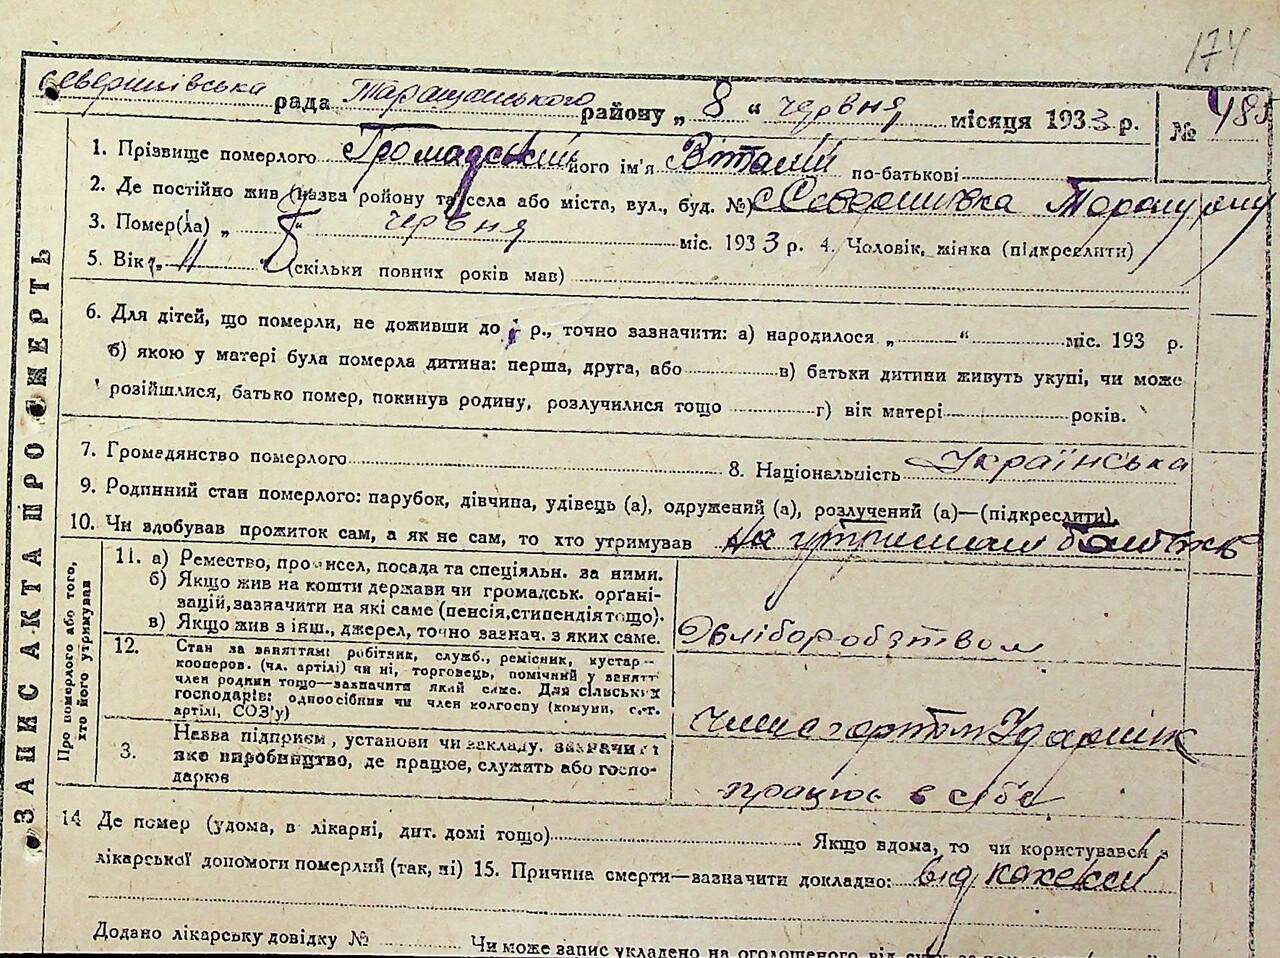 174
рада Таращанського району „ 8 “ червня місяця 1933 р. № 485
1. Прізвище померлого Громадський його ім'я Віталій по-батькові
2. Де постійно жив (назва ройону та села або міста, вул., буд. №)
3. Помер(ла) „ “ червня міс. 1933 р. 4. Чоловік, жінка (підкреслити)
5. Вік „ 11 “ (скільки повних років мав)
6. Для дітей, що померли, не доживши до р., точно зазначити: а) народилося „ “ міс. 193 р.
б) якою у матері була померла дитина: перша, друга, або в) батьки дитини живуть укупі, чи може
розійшлися, батько помер, покинув родину, розлучилися тощо г) вік матері років.
7. Громадянство померлого 8. Національність Українська
9. Родинний стан померлого: парубок, дівчина, удівець (а), одружений (а), розлучений (а)—(підкреслити).
10. Чи здобував прожиток сам, а як не сам, то хто утримував на
ЗАПИС АКТА ПРО СМЕРТЬ
Про померлого або того,
хто його утримував
11. а) Ремество, промисел, посада та спеціяльн. за ними.
б) Якщо жив на кошти держави чи громадськ. орґані-
зацій, зазначити на які саме (пенсія, стипендія тощо).
в) Якщо жив з інш., джерел, точно зазнач. з яких саме.
12. Стан за заняттям: робітник, служб., ремісник, кустар—
кооперов. (чл. артілі) чи ні, торговець, помічний у занятт
член родини тощо—зазначити який саме. Для сільських
господарів: одноосібник чи член колгоспу (комуни, с.-г.
артілі, СОЗ'у)
3. Назва підприєм, установи чи закладу, зазначити
яке виробництво, де працює, служить або госпо-
дарює
працює в
14 Де помер (удома, в лікарні, дит. домі тощо) Якщо вдома, то чи користувався з
лікарської допомоги померлий (так, ні) 15. Причина смерти—зазначити докладно: від
Додано лікарську довідку № Чи може запис укладено на оголошеного від